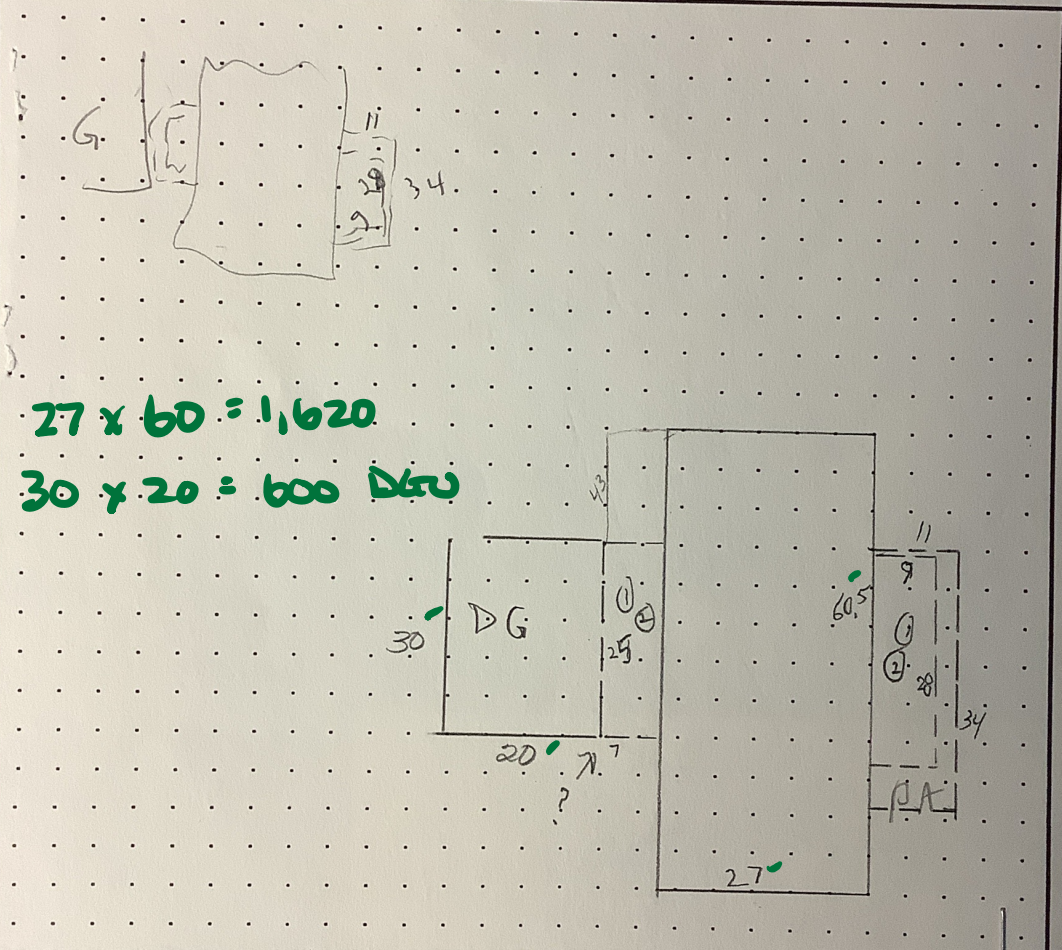 G.
11
28
34
9
27 x 60 = 1,620
30 x 20 = 600 DGU
43
11
9
60.5
1
2
DG
30
25
1
2
28
34
20
7
?
PA
27